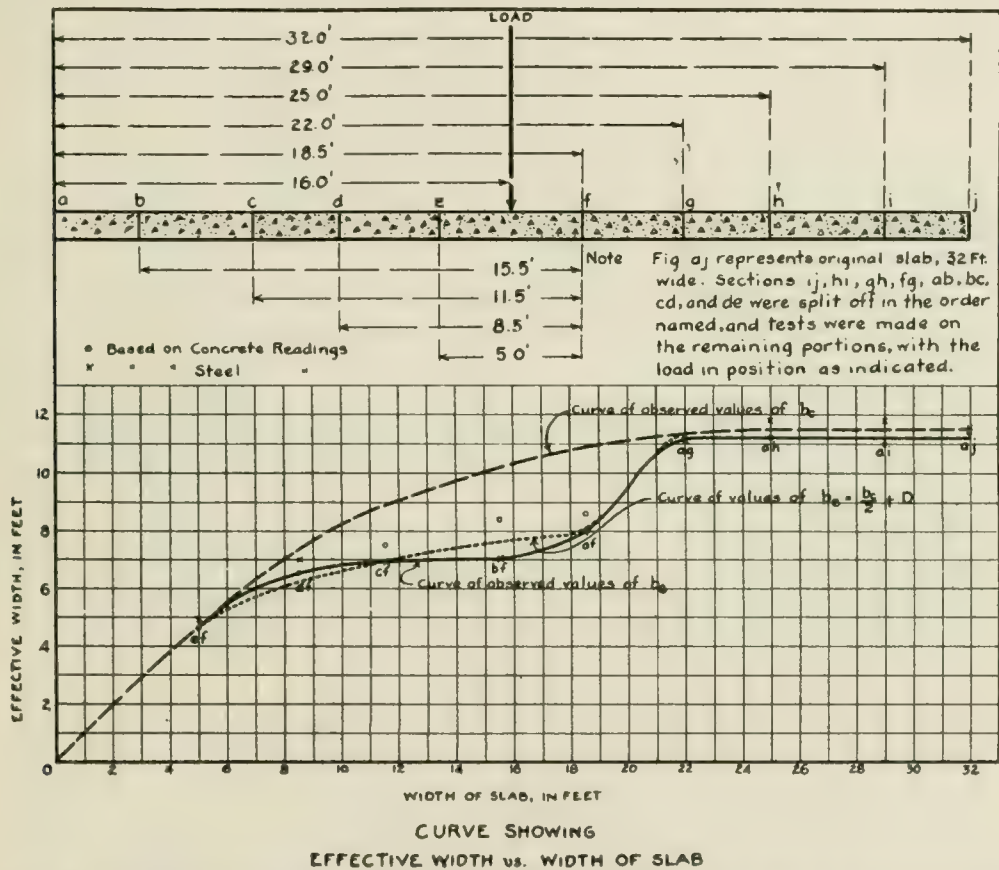 LOAD
32.0'
29.0'
25.0'
22.0'
18.5'
16.0'
a b c d e f g h i j
15.5'
11.5'
8.5'
5.0'
Note Fig aj represents original slab, 32 Ft.
wide. Sections ij, hi, gh, fg, ab, bc,
cd, and de were split off in the order
named, and tests were made on
the remaining portions, with the
load in position as indicated.
o Based on Concrete Readings
x " " Steel "
Curve of observed values of bc
ag ah ai aj
Curve of values of be = bc/2 + D
af
bf
cf
df
ef
Curve of observed values of be
EFFECTIVE WIDTH, IN FEET
12
10
8
6
4
2
0 2 4 6 8 10 12 14 16 18 20 22 24 26 28 30 32
WIDTH OF SLAB, IN FEET
CURVE SHOWING
EFFECTIVE WIDTH vs. WIDTH OF SLAB